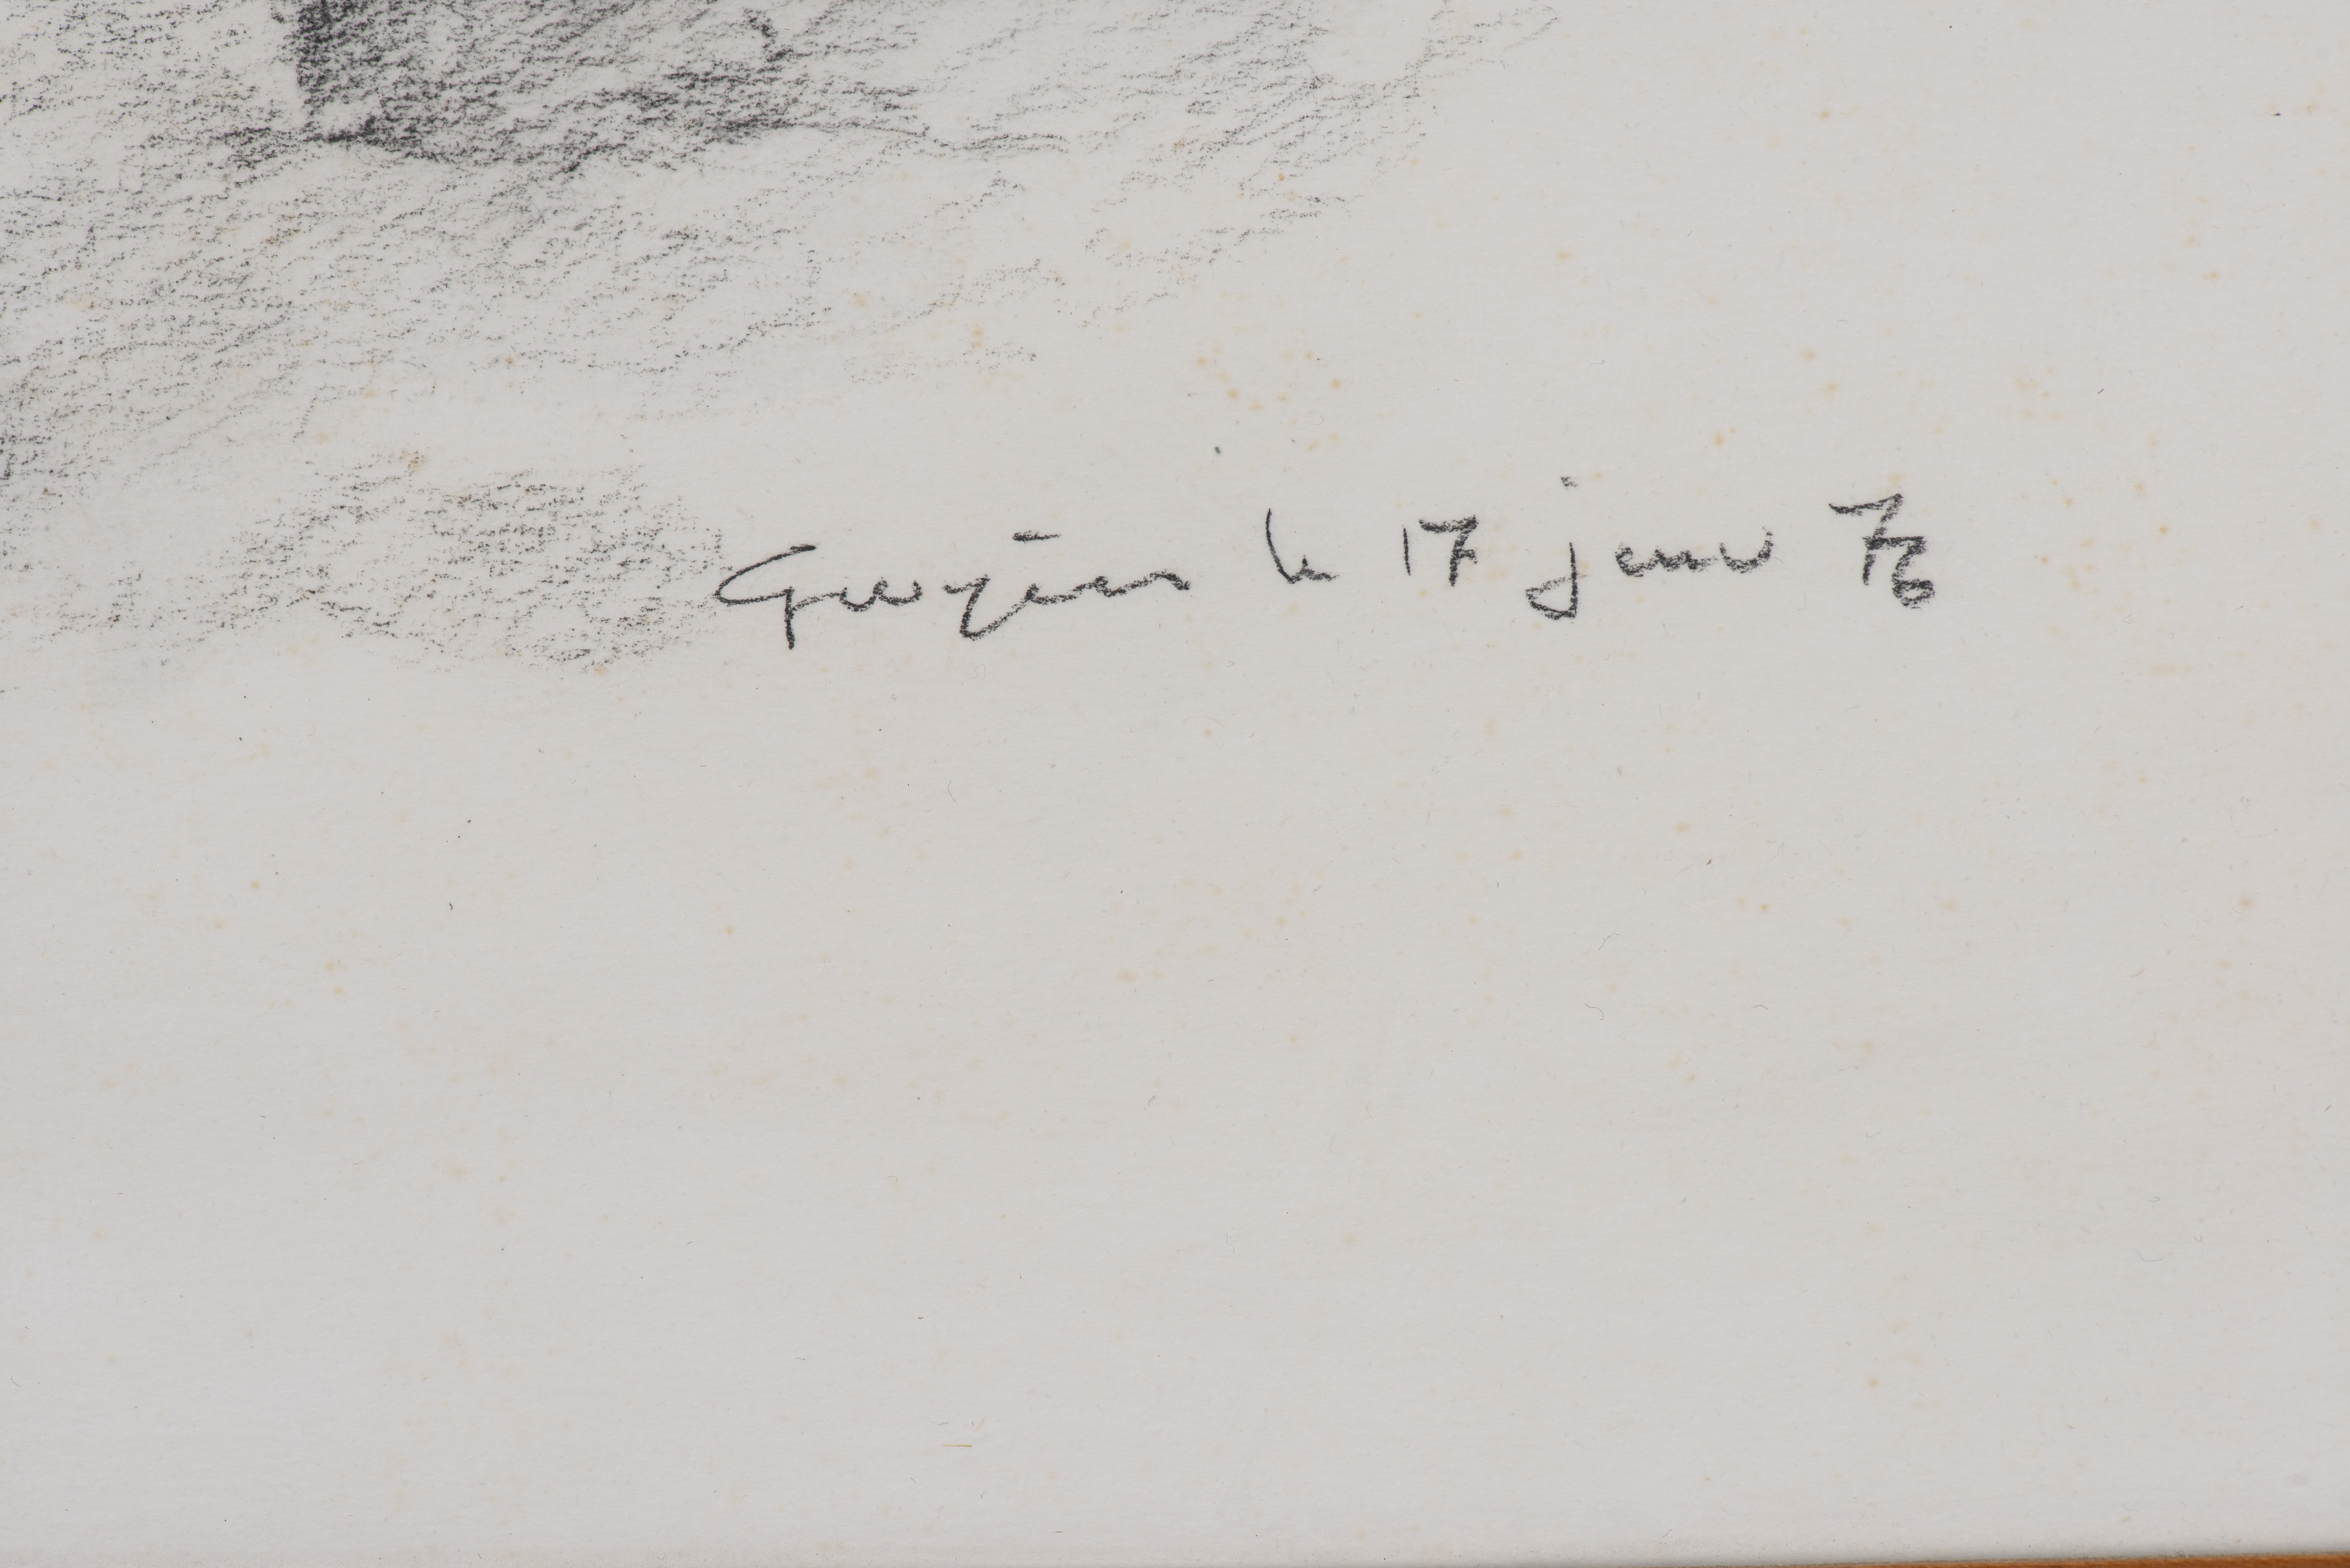 le 17 janv 76